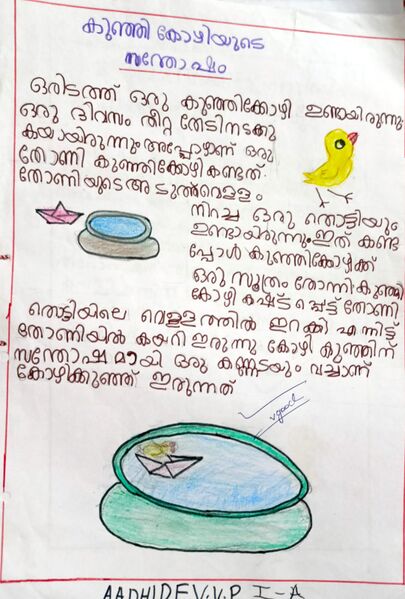 കുഞ്ഞി കോഴിയുടെ
സന്തോഷം
ഒരിടത്ത് ഒരു കുഞ്ഞിക്കോഴി ഉണ്ടായിരുന്നു
ഒരു ദിവസം തീറ്റ തേടിനടക്കു
കയായിരുന്നു അപ്പോഴാണ് ഒരു
തോണി കുഞ്ഞികോഴി കണ്ടത്.
തോണിയുടെ അടുത്ത് വെള്ളം
നിറച്ച ഒരു തൊട്ടിയും
ഉണ്ടായിരുന്നു ഇത് കണ്ട
പ്പോൾ കുഞ്ഞിക്കോഴിക്ക്
ഒരു സൂത്രം തോന്നി കുഞ്ഞി
കോഴി കഷ്ട്ട പ്പെട്ട് തോണി
തൊട്ടിയിലെ വെള്ളത്തിൽ ഇറക്കി എന്നിട്ട്
തോണിയിൽ കയറി ഇരുന്നു കോഴി കുഞ്ഞിന്
സന്തോഷമായി ഒരു കണ്ണടയും വച്ചാണ്
കോഴിക്കുഞ്ഞ് ഇരുന്നത്
v.good
AADHIDEV.V.P I-A